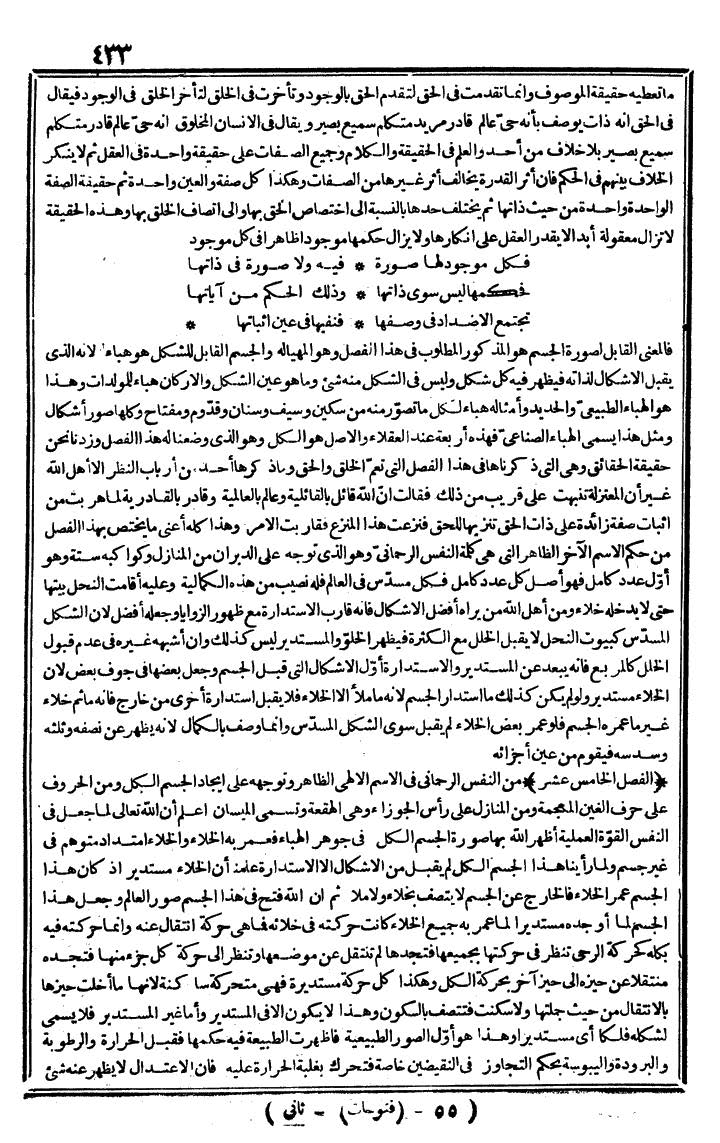 ٤٣٣
ما تعطيه حقيقة الموصوف وانما تقدمت فى الحق لتقدم الحق بالوجود وتأخرت فى الخلق لتأخر الخلق فى الوجود فيقال
فى الحق انه ذات يوصف بأنه حىّ عالم قادر مريد متكلم سميع بصير ويقال فى الانسان المخلوق انه حىّ عالم قادر متكلم
سميع بصير بلا خلاف من أحد والعلم فى الحقيقة والكلام وجميع الصفات على حقيقة واحدة فى العقل ثم لا ينكر
الخلاف بينهم فى الحكم فان أثر القدرة يخالف أثر غيرها من الصفات وهكذا كل صفة والعين واحدة ثم حقيقة الصفة
الواحدة واحدة من حيث ذاتها ثم يختلف حدها بالنسبة الى اختصاص الحق بها والى اتصاف الخلق بها وهذه الحقيقة
لا تزال معقولة أبدا لا يقدر العقل على انكارها ولا يزال حكمها موجودا ظاهرا فى كل موجود
فكل موجود لها صورة * فيه ولا صورة فى ذاتها
فحكمها ليس سوى ذاتها * وذلك الحكم من آياتها
تجتمع الاضداد فى وصفها * فنفيها فى عين اثباتها *
فالمعنى القابل لصورة الجسم هو المذكور المطلوب فى هذا الفصل وهو المهيأ له والجسم القابل للشكل هو هباء لانه الذى
يقبل الاشكال لذاته فيظهر فيه كل شكل وليس فى الشكل منه شئ وما هو عين الشكل والاركان هباء للمولدات وهذا
هو الهباء الطبيعىّ والحديد وأمثاله هباء لكل ما تصوّر منه من سكين وسيف وسنان وقدّوم ومفتاح وكلها صور أشكال
ومثل هذا يسمى الهباء الصناعىّ فهذه أربعة عند العقلاء والاصل هو الكل وهو الذى وضعنا له هذا الفصل وزدنا نحن
حقيقة الحقائق وهى التى ذكرناها فى هذا الفصل التى تعمّ الخلق والحق وما ذكرها أحد من أرباب النظر الا أهل الله
غير أن المعتزلة تنبهت على قريب من ذلك فقالت انّ الله قائل بالقائلية وعالم بالعالمية وقادر بالقادرية لما هربت من
اثبات صفة زائدة على ذات الحق تنزيها للحق فنزعت هذا المنزع فقاربت الامر وهذا كله أعنى ما يختص بهذا الفصل
من حكم الاسم الآخر الظاهر التى هى كلمة النفس الرحمانىّ وهو الذى توجه على الدبران من المنازل وكواكبه ستة وهو
أوّل عدد كامل فهو أصل كل عدد كامل فكل مسدّس فى العالم فله نصيب من هذه الكمالية وعليه أقامت النحل بيتها
حتى لا يدخله خلاء ومن أهل الله من يراه أفضل الاشكال فانه قارب الاستدارة مع ظهور الزوايا وجعله أفضل لان الشكل
المسدّس كبيوت النحل لا يقبل الخلل مع الكثرة فيظهر الخلوّ والمستدير ليس كذلك وان أشبهه غيره فى عدم قبول
الخلل كالمربع فانه يبعد عن المستدير والاستدارة أوّل الاشكال التى قبل الجسم وجعل بعضها فى جوف بعض لان
الخلاء مستدير ولو لم يكن كذلك ما استدار الجسم لانه ما ملأ الا الخلاء فلا يقبل استدارة أخرى من خارج فانه ما ثم خلاء
غير ما عمره الجسم فلو عمر بعض الخلاء لم يقبل سوى الشكل المسدّس وانما وصف بالكمال لانه يظهر عن نصفه وثلثه
وسدسه فيقوم من عين أجزائه
﴿الفصل الخامس عشر﴾ من النفس الرحمانى فى الاسم الالهى الظاهر وتوجهه على ايجاد الجسم الكل ومن الحروف
على حرف الغين المعجمة ومن المنازل على رأس الجوزاء وهى الهقعة وتسمى الميسان اعلم أن الله تعالى لما جعل فى
النفس القوّة العملية أظهر الله بها صورة الجسم الكل فى جوهر الهباء فعمر به الخلاء والخلاء امتداد متوهم فى
غير جسم ولما رأينا هذا الجسم الكل لم يقبل من الاشكال الا الاستدارة علمنا أن الخلاء مستدير اذ كان هذا
الجسم عمر الخلاء فالخارج عن الجسم لا يتصف بخلاء ولا ملا ثم ان الله فتح فى هذا الجسم صور العالم وجعل هذا
الجسم لما أوجده مستديرا لما عمر به جميع الخلاء كانت حركته فى خلائه فما هى حركة انتقال عنه وانما حركته فيه
بكله كحركة الرحى تنظر فى حركتها بجميعها فتجدها لم تنتقل عن موضعها وتنظر الى حركة كل جزء منها فتجده
منتقلا عن حيزه الى حيز آخر بحركة الكل وهكذا كل حركة مستديرة فهى متحركة ساكنة لانها ما أخلت حيزها
بالانتقال من حيث جملتها ولا سكنت فتتصف بالسكون وهذا لا يكون الا فى المستدير وأما غير المستدير فلا يسمى
لشكله فلكا أى مستديرا وهذا هو أوّل الصور الطبيعية فاظهرت الطبيعة فيه حكمها فقبل الحرارة والرطوبة
والبرودة واليبوسة بحكم التجاوز فى النقيضين خاصة فتحرك بغلبة الحرارة عليه فان الاعتدال لا يظهر عنه شئ
( ٥٥ - (فتوحات) - ثانى )